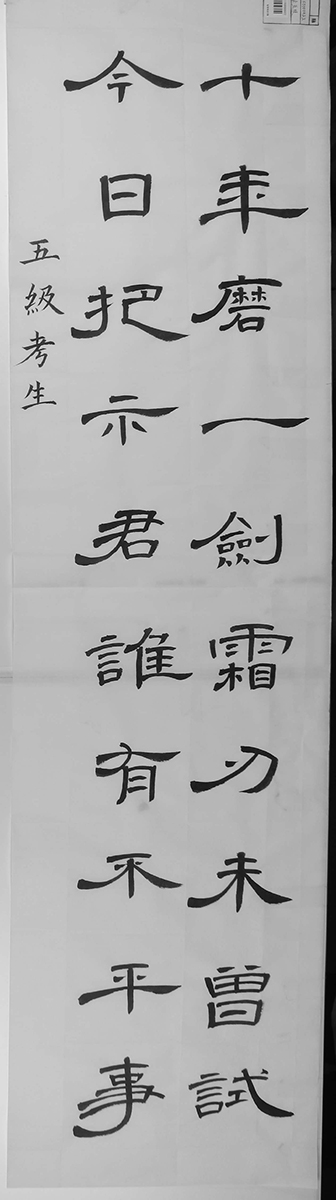 十年磨一劍霜刃未曾試
今日把示君誰有不平事
五級考生